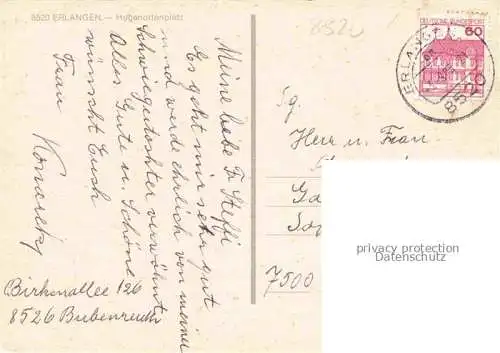 8520 ERLANGEN — Hugenottenplatz
8520
Meine liebe Fr Steffi
Es geht mir sehr gut
und werde ehrlich von meiner
Schwiegertochter verwöhnt
Alles Gute u. Schöne
wünscht Euch
Frau
Birkenallee 126
8526 Bubenreuth
DEUTSCHE BUNDESPOST
60
ERLANGEN
8520
Herrn u. Frau
7500
privacy protection
Datenschutz